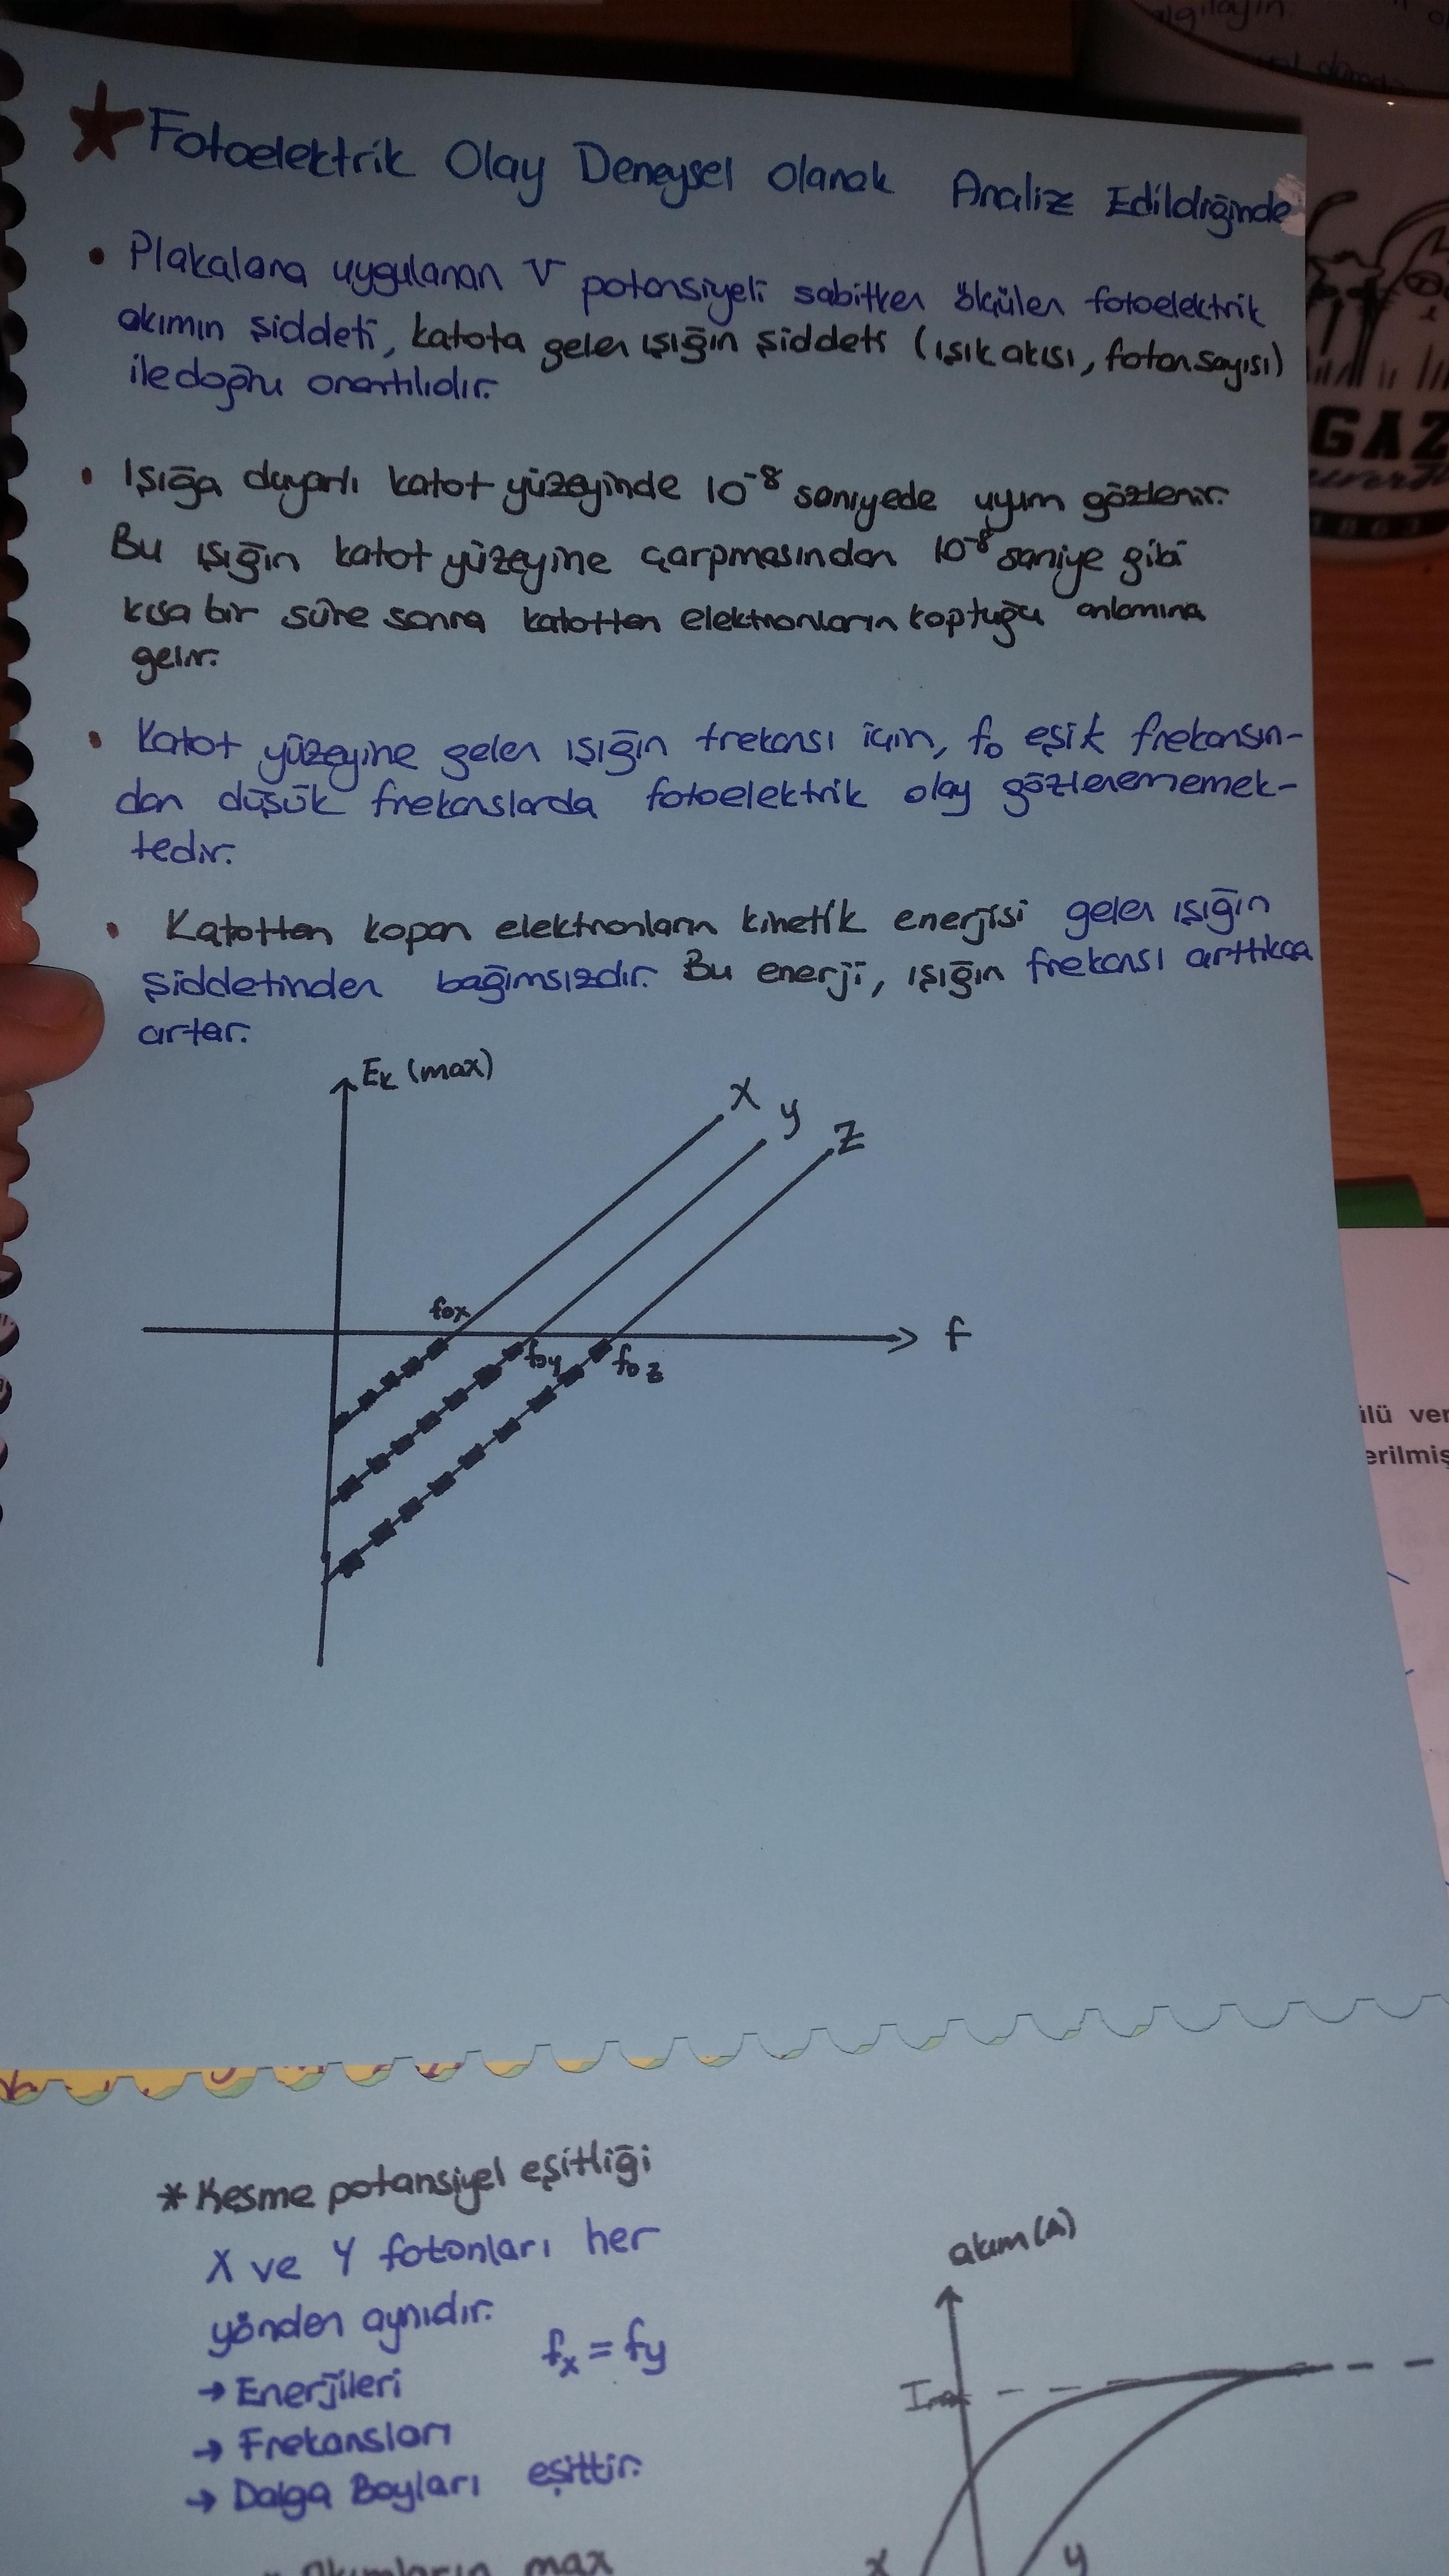 Fotoelektrik Olay Deneysel Olarak Analiz Edildiğinde
• Plakalara uygulanan V potansiyeli sabitken ölçülen fotoelektrik
akımın şiddeti, katota gelen ışığın şiddeti (ışık akısı, foton sayısı)
ile doğru orantılıdır.
• Işığa duyarlı katot yüzeyinde 10⁻⁸ saniyede uyum gözlenir.
Bu ışığın katot yüzeyine çarpmasından 10⁻⁸ saniye gibi
kısa bir süre sonra katotten elektronların koptuğu anlamına
gelir.
• Katot yüzeyine gelen ışığın frekansı için, f₀ eşik frekansın-
dan düşük frekanslarda fotoelektrik olay gözlenememek-
tedir.
• Katotten kopan elektronların kinetik enerjisi gelen ışığın
şiddetinden bağımsızdır. Bu enerji, ışığın frekansı arttıkca
artar.
Ek (max)
X
y
Z
fox
foy
foz
f
GAZ
1863
ülü ver
erilmiş
* Kesme potansiyel eşitliği
X ve Y fotonları her
yönden aynıdır.
fx = fy
→ Enerjileri
→ Frekansları
→ Dalga Boyları eşittir.
akım(A)
x
y
Akımların max